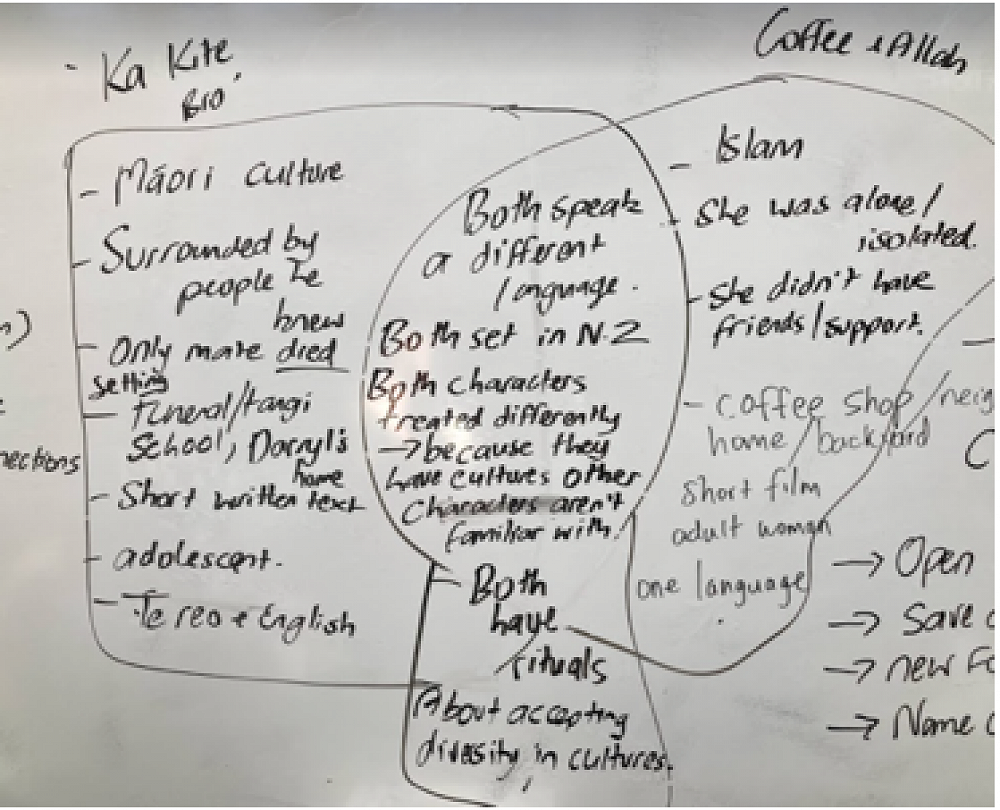 - Ka Kite
Bro
Coffee & Allah
- Māori culture
- Surrounded by
people he
knew
- Only mate died
setting
- funeral/tangi
School, Darryl's
home
- Short written text
- adolescent.
- Te reo + English
Both speak
a different
language.
Both set in N.Z
Both characters
treated differently
→ because they
have cultures other
characters aren't
familiar with.
- Both
have
rituals
About accepting
divesity in cultures.
- Islam
- She was alone/
isolated.
- She didn't have
friends/support.
- coffee shop/neig
home/backyard
short film
adult woman
one language
nections
→ Open
→ Save
→ new Fo
→ Name